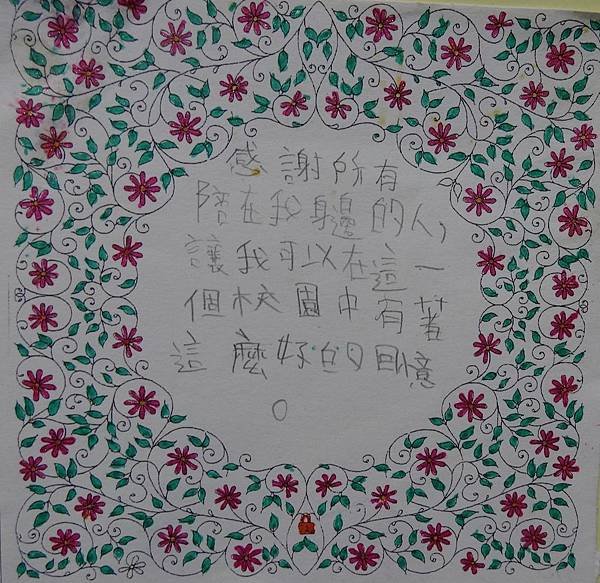 感謝所有
陪在我身邊的人,
讓我可以在這一
個校園中有著
這麼好的回憶
。